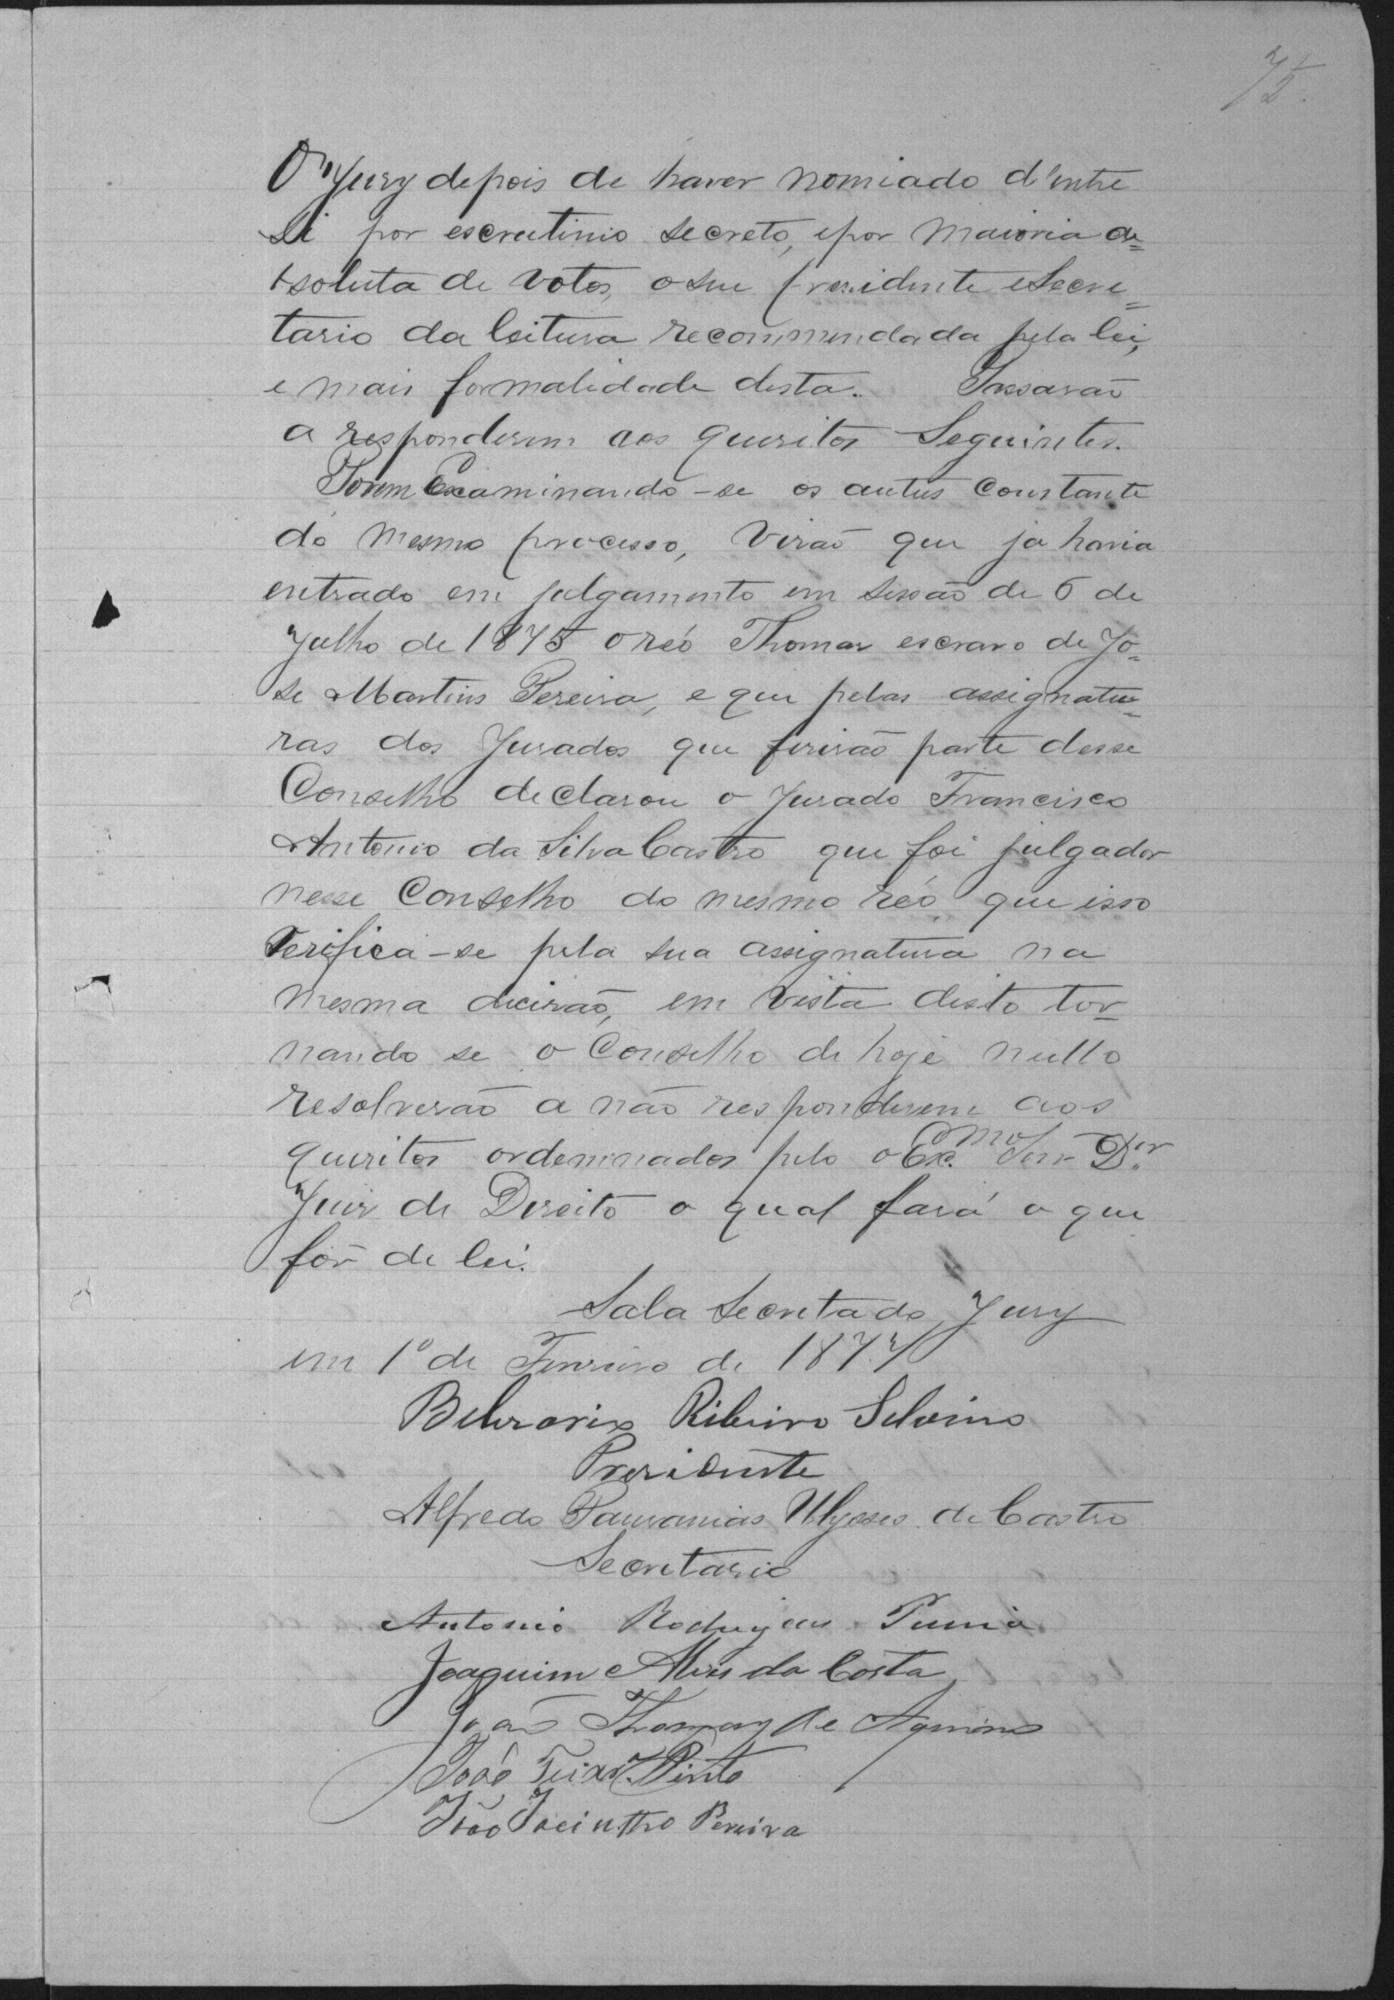 75.
O Jury depois de haver nomiado d'entre
si por escrutinio secreto, e por maioria ab=
soluta de votos, o seu presidente e Secre=
tario da leitura recommendada pela lei,
e mais formalidade desta. Passarão
a responderem aos queritos Seguintes.
Porem Examinando-se os autus constante
do mesmo processo, Virão que ja havia
entrado em julgamento em sessão de 6 de
Julho de 1875 o réo Thomas escravo de Jo=
se Martins Pereira, e que pelas assignatu=
ras dos Jurados que fizirão parte desse
Conselho declarou o Jurado Francisco
Antonio da Silva Castro que foi julgador
nesse Conselho do mesmo réo que isso
Verifica-se pela sua assignatura na
mesma decisão, em Vista disto tor-
nando se o Conselho de hoje nullo
resolverão a não responderem aos
queritos ordeminados pelo o Ex.mo Senr D.or
Juiz de Direito o qual fará o que
fôr de lei.
Sala Secreta do Jury
em 1º de Fevreiro de 1877
Ribeiro Silvino
Presidente
Alfredo Pausanias Ulysses de Castro
Secretario
Antonio Rodrigues
Joaquim Alves da Costa
João Thomaz de Aquino
João Teixr.ª Pinto
João Jacintho Pereira